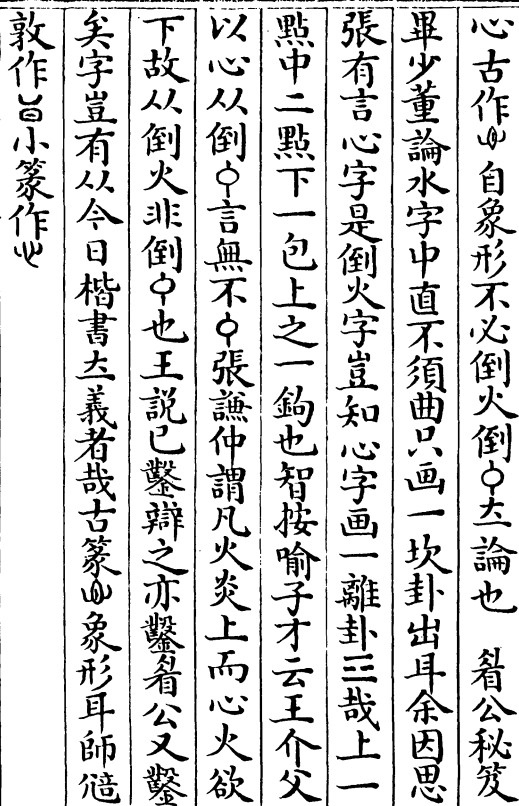 心古作𢖩自象形不必倒火倒𢆉𠫤論也　眉公秘笈
畢少董論水字中直不須曲只画一坎卦出耳余因思
張有言心字是倒火字豈知心字画一離卦☲哉上一
點中二點下一包上之一鉤也智按喻子才云王介父
以心从倒言無不張謙仲謂凡火炎上而心火欲
下故从倒火非倒也王説已鑿辯之亦鑿眉公又鑿
矣字豈有从今日楷書立義者哉古篆象形耳師𠭖
敦作小篆作